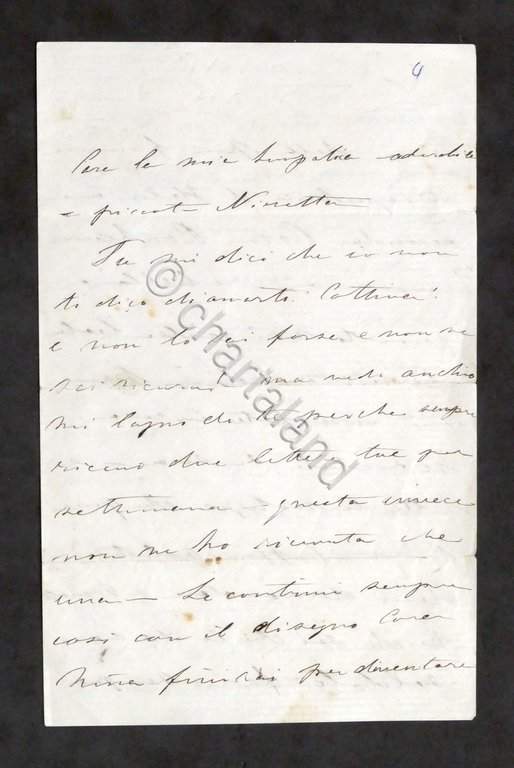 4
Cara la mia simpatica adorabile
e Ninetta
Tu mi dici che io non
ti dico di amarti. Cattiva!
e non lo sai forse, e non ne
sei sicura? ma vedi anch'io
mi lagno di te perché sempre
ricevo due lettere tue per
settimana - questa invece
non ne ho ricevuta che
una - Se continui sempre
così con il disegno Cara
Nina finirai per diventare
© chartaland